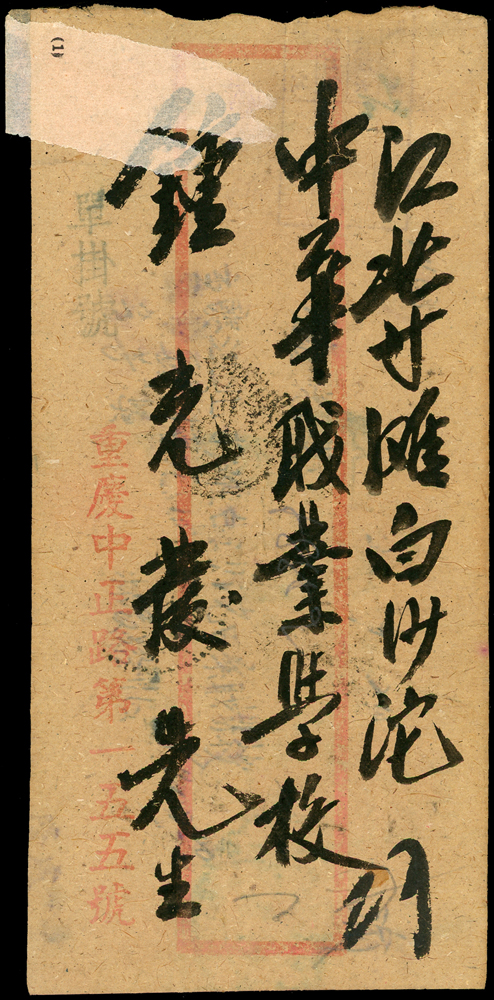 江北廿灘白沙沱
中華職業學校
鍾光發先生
單掛號
重慶中正路第一五五號
(1)